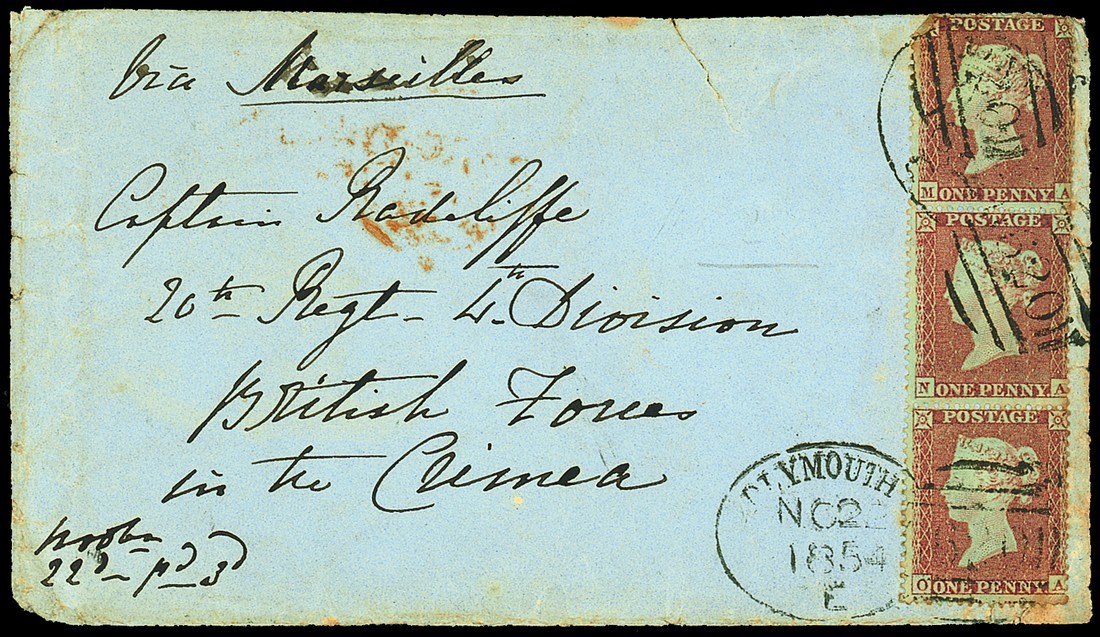 via Marseilles
Captain Radcliffe
20th Regt - 4th Division
British Forces
in the Crimea
22d pd 3d
POSTAGE
M ONE PENNY A
POSTAGE
N ONE PENNY A
POSTAGE
O ONE PENNY A
PLYMOUTH
NO 22
1854
E